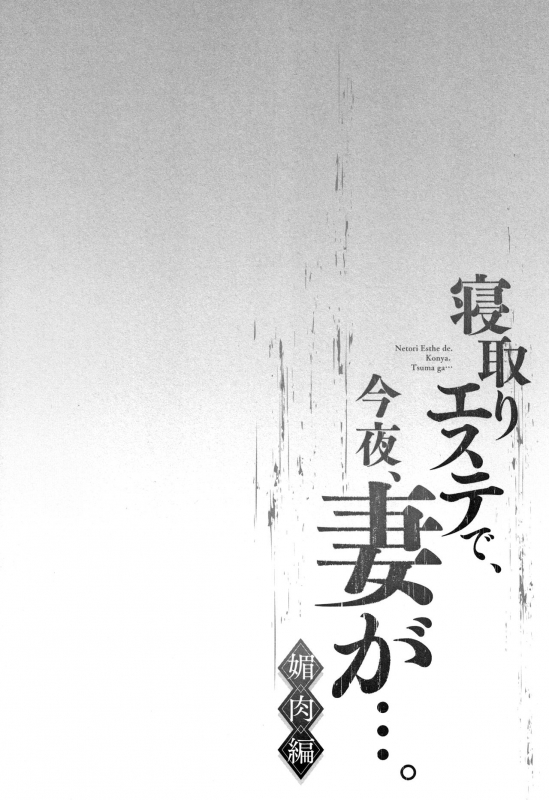 寝取り
エステで、
Netori Esthe de,
Konya,
Tsuma ga…
今夜、
妻が…。
媚肉編